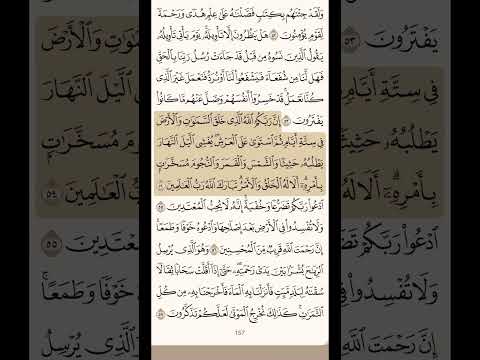 وَلَقَدْ جِئْنَٰهُم بِكِتَٰبٍ فَصَّلْنَٰهُ عَلَىٰ عِلْمٍ هُدًى وَرَحْمَةً
لِّقَوْمٍ يُؤْمِنُونَ ٥٢ هَلْ يَنظُرُونَ إِلَّا تَأْوِيلَهُۥ يَوْمَ يَأْتِى تَأْوِيلُهُۥ
يَقُولُ ٱلَّذِينَ نَسُوهُ مِن قَبْلُ قَدْ جَآءَتْ رُسُلُ رَبِّنَا بِٱلْحَقِّ
فَهَل لَّنَا مِن شُفَعَآءَ فَيَشْفَعُوا۟ لَنَآ أَوْ نُرَدُّ فَنَعْمَلَ غَيْرَ ٱلَّذِى
كُنَّا نَعْمَلُ ۚ قَدْ خَسِرُوٓا۟ أَنفُسَهُمْ وَضَلَّ عَنْهُم مَّا كَانُوا۟
يَفْتَرُونَ ٥٣ إِنَّ رَبَّكُمُ ٱللَّهُ ٱلَّذِى خَلَقَ ٱلسَّمَٰوَٰتِ وَٱلْأَرْضَ
فِى سِتَّةِ أَيَّامٍ ثُمَّ ٱسْتَوَىٰ عَلَى ٱلْعَرْشِ يُغْشِى ٱلَّيْلَ ٱلنَّهَارَ
يَطْلُبُهُۥ حَثِيثًا وَٱلشَّمْسَ وَٱلْقَمَرَ وَٱلنُّجُومَ مُسَخَّرَٰتٍۭ
بِأَمْرِهِۦٓ ۗ أَلَا لَهُ ٱلْخَلْقُ وَٱلْأَمْرُ ۗ تَبَارَكَ ٱللَّهُ رَبُّ ٱلْعَٰلَمِينَ ٥٤
ٱدْعُوا۟ رَبَّكُمْ تَضَرُّعًا وَخُفْيَةً ۚ إِنَّهُۥ لَا يُحِبُّ ٱلْمُعْتَدِينَ ٥٥
وَلَا تُفْسِدُوا۟ فِى ٱلْأَرْضِ بَعْدَ إِصْلَٰحِهَا وَٱدْعُوهُ خَوْفًا وَطَمَعًا ۚ
إِنَّ رَحْمَتَ ٱللَّهِ قَرِيبٌ مِّنَ ٱلْمُحْسِنِينَ ٥٦ وَهُوَ ٱلَّذِى يُرْسِلُ
ٱلرِّيَٰحَ بُشْرًۢا بَيْنَ يَدَىْ رَحْمَتِهِۦ ۖ حَتَّىٰٓ إِذَآ أَقَلَّتْ سَحَابًا ثِقَالًا
سُقْنَٰهُ لِبَلَدٍ مَّيِّتٍ فَأَنزَلْنَا بِهِ ٱلْمَآءَ فَأَخْرَجْنَا بِهِۦ مِن كُلِّ
ٱلثَّمَرَٰتِ ۚ كَذَٰلِكَ نُخْرِجُ ٱلْمَوْتَىٰ لَعَلَّكُمْ تَذَكَّرُونَ ٥٧
157